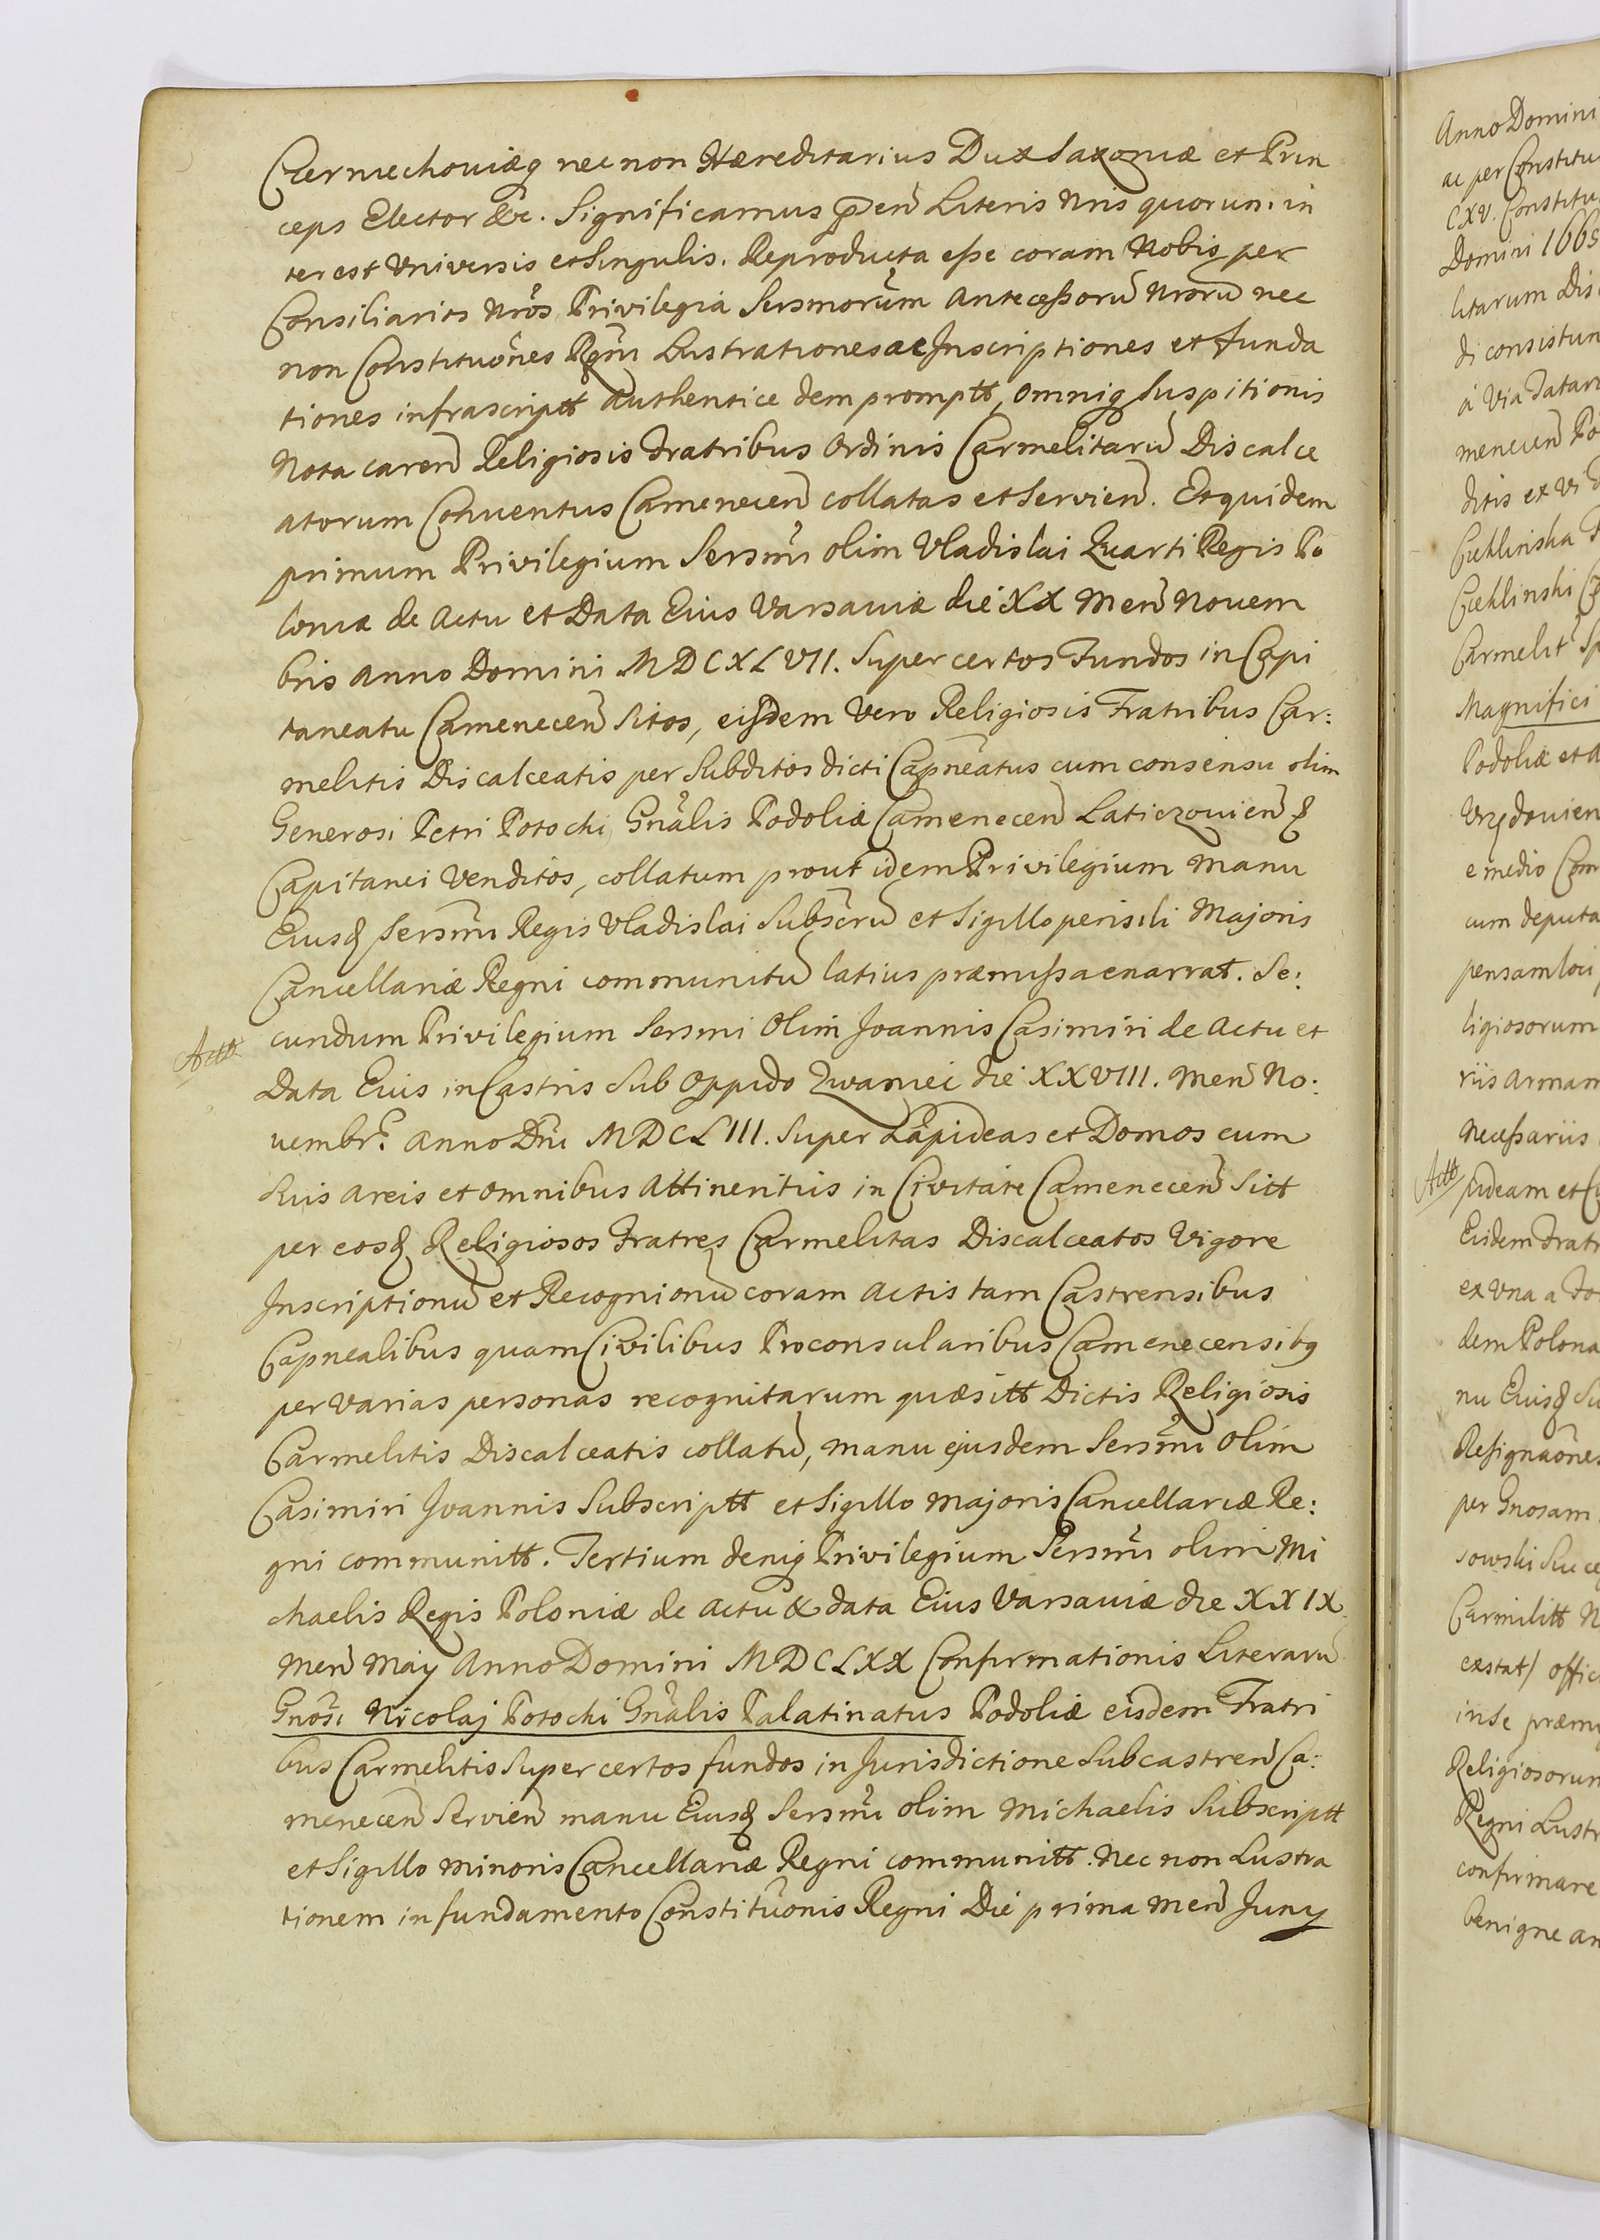 Czerniechoviæq nec non Hæreditarius Dux Saxoniæ et Prin
ceps Elector &c. Significamus p̄en̄ Literis Nris quorum in
terest Universis et Singulis. Reproducta esse coram Nobis per
Consiliarios Nrōs Privilegia Sersmorūm Antecessorū Nrorū nec
non Constitutiōnes Rgni Lustrationes ac Inscriptiones et funda
tiones infrascriptt Authentice dem promptt, omniq Suspitionis
Nota caren̄ Religiosis Fratribus Ordinis Carmelitarū Discalce
atorum Conventus Camenecen̄ collatas et Servien̄. Et quidem
primum Privilegium Sersmī olim Vladislai Quarti Regis Po
loniæ de Actu et Data Eius Varsaviæ die XX Men̄ Novem
bris Anno Domini MDCXLVII. Super certos Fundos in Capi
taneatu Camenecen̄ Sitos, eisdem Vero Religiosis Fratribus Car:
melitis Discalceatis per Subditos dicti Capneātus cum consensu olim
Generosi Petri Potocki Gnālis Podoliæ Camenecen̄ Laticzovien̄ &
Capitanei Venditos, collatum prout idem Privilegium Manu
Eiusq Sersmī Regis Vladislai Subscrū et Sigillo pensili Majoris
Cancellariæ Regni communitū latius præmissa enarrat. Se:
cundum Privilegium Sersmi Olim Joannis Casimiri de Actu et
Data Eius in Castris Sub Oppido Zwaniei die XXVIII. Men̄ No:
vembr. Anno Dni MDCLIII. Super Lapideas et Domos cum
Suis Areis et omnibus Attinentiis in Civitate Camenecen̄ Sitt
per eosq Religiosos Fratres Carmelitas Discalceatos Vigore
Inscriptionū et Recognionū coram Actis tam Castrensibus
Capnealibus quam Civilibus Proconsularibus Camenecensibq
per Varias personas recognitarum quæsitt Dictis Religiosis
Carmelitis Discalceatis collatū, manu ejusdem Sersmī Olim
Casimiri Joannis Subscriptt et Sigillo Majoris Cancellariæ Re:
gni communitt. Tertium deniq Privilegium Sersmī olim Mi
chaelis Regis Poloniæ de Actu & data Eius Varsaviæ die XXIX
Men̄ Maÿ Anno Domini MDCLXX Confirmationis Literarū
Gnosi Nicolaj Potocki Gnālis Palatinatus Podoliæ eisdem Fratri
bus Carmelitis Super certos fundos in Jurisdictione Subcastren̄ Ca:
menecen̄ Servien̄ manu Eiusq Sersmī olim Michaelis Subscriptt
et Sigillo minoris Cancellariæ Regni communitt. Nec non Lustra
tionem in fundamento Constitutiōnis Regni Die prima Men̄ Junÿ
Anno Domini
ac per Constitu
CXV. Constitu
Domini 166
litarum Dis
di consistun
à Via Tatar
menecen̄ Po
ditis ex vi
Carmelit
Magnifici
Podoliæ et
e medio
cum deputa
pensam loci
ligiosorum
riis Arman
necessariis
pideam et
Eidem Fratr
ex Una a
dem Polona
nu Eiusq Su
Resignaōnes
per Gnosam
Carmilitt
exstat) offic
in Se præm
Religiosorum
Regni Lustr
confirmare
benigne an